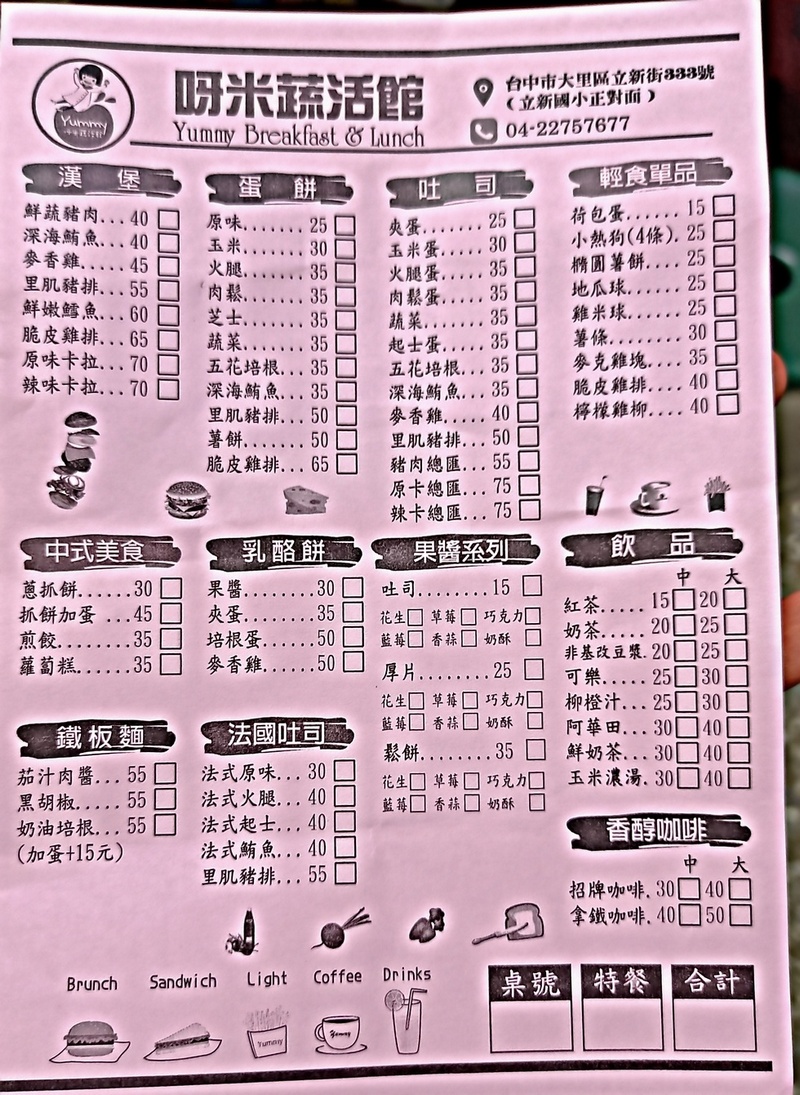 Yummy
呀米蔬活館
呀米蔬活館
Yummy Breakfast & Lunch
台中市大里區立新街333號
(立新國小正對面)
04-22757677
漢 堡
鮮蔬豬肉...40
深海鮪魚...40
麥香雞.....45
里肌豬排...55
鮮嫩鱈魚...60
脆皮雞排...65
原味卡拉...70
辣味卡拉...70
蛋 餅
原味.......25
玉米.......30
火腿.......35
肉鬆.......35
芝士.......35
蔬菜.......35
五花培根...35
深海鮪魚...35
里肌豬排...50
薯餅.......50
脆皮雞排...65
吐 司
夾蛋.......25
玉米蛋.....30
火腿蛋.....35
肉鬆蛋.....35
蔬菜.......35
起士蛋.....35
五花培根...35
深海鮪魚...35
麥香雞.....40
里肌豬排...50
豬肉總匯...55
原卡總匯...75
辣卡總匯...75
輕食單品
荷包蛋......15
小熱狗(4條).25
橢圓薯餅....25
地瓜球......25
雞米球......25
薯條........30
麥克雞塊....35
脆皮雞排....40
檸檬雞柳....40
中式美食
蔥抓餅......30
抓餅加蛋 ...45
煎餃........35
蘿蔔糕......35
乳酪餅
果醬.......30
夾蛋.......35
培根蛋.....50
麥香雞.....50
果醬系列
吐司........15
花生 草莓 巧克力
藍莓 香蒜 奶酥
厚片........25
花生 草莓 巧克力
藍莓 香蒜 奶酥
鬆餅........35
花生 草莓 巧克力
藍莓 香蒜 奶酥
飲 品
中 大
紅茶.....15 20
奶茶.....20 25
非基改豆漿.20 25
可樂.....25 30
柳橙汁...25 30
阿華田...30 40
鮮奶茶...30 40
玉米濃湯.30 40
鐵板麵
茄汁肉醬...55
黑胡椒.....55
奶油培根...55
(加蛋+15元)
法國吐司
法式原味...30
法式火腿...40
法式起士...40
法式鮪魚...40
里肌豬排...55
香醇咖啡
中 大
招牌咖啡.30 40
拿鐵咖啡.40 50
Brunch Sandwich Light Coffee Drinks
Yummy
Yummy
桌號 特餐 合計